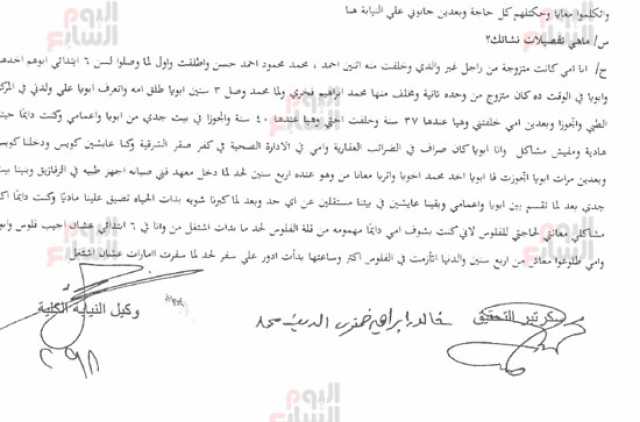 واتكلموا معايا وحكتلهم كل حاجة وبعدين جابوني علي النيابة هنا
س/ ماهي تفصيلات نشأتك؟
ج/ انا امي كانت متزوجة من راجل غير والدي وخلفت منه اتنين احمد ، محمد محمود احمد حسن واطلقت واول لما وصلوا لسن ٦ ابتدائي ابوهم اخدهم
وابويا في الوقت ده كان متزوج من وحده ثانية ومخلف منها محمد ابراهيم فخري ولما محمد وصل ٣ سنين ابويا طلق امه واتعرف ابويا علي ولدتي في المركز
الطبي واتجوزا وبعدين امي خلفتني وهيا عندها ٣٧ سنة وخلفت اختي وهيا عندها ٤٠ سنة واتجوزا في بيت جدي من ابويا واعمامي وكنت دايمًا
هادية ومفيش مشاكل وانا ابويا كان صراف في الضرائب العقارية وامي في الادارة الصحية في كفر صقر الشرقية وكنا عايشين كويس ودخلنا كويس
وبعدين مرات ابويا اتجوزت فا ابويا اخد محمد اخويا واتربا معانا من وهو عنده اربع سنين لحد لما دخل معهد فني صيانه اجهز طبيه في الزقازيق وبنينا بيت
جدي بعد لما تقسم بين ابويا واعمامي وبقينا عايشين في بيتنا مستقلين عن اي حد وبعد لما كبرنا شويه بدات الحياه تضيق علينا ماديًا وكنت دايمًا
مشاكلي معاني لحاجتي للفلوس لاني كنت بشوف امي دايمًا مهمومه من قلة الفلوس لحد ما بدات اشتغل من وانا في ٦ ابتدائي عشان اجيب فلوس
وامي طلعوا معاش من اربع سنين والدنيا اتأزمت في الفلوس اكتر وساعتها بدأت ادور علي سفر لحد لما سفرت الامارات عشان اشتغل
سكرتير التحقيق
وكيل النيابة الكلية
اليوم السابع